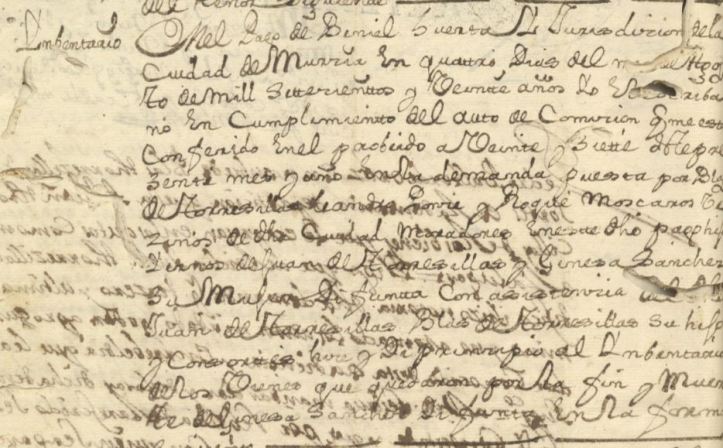 del thenor siguiente
Ynbentario
En el Pago de Beniel huerta y Jurisdizion de la
Ciudad de Murzia En quattro Dias del mes de Agos
to de Mill Settezientos y Veinte años Yo el escriba
no En Cumplimiento del auto de Comision q me est
Conferido En el probeido a Veinte y Siette de
sente mes y año En la demanda puesta por Blas
de Torresillas Leandro y Roque Moscaros Ve
zinos de dha Ciudad Moradores En este dho pago hijo
Yernos de Juan de Torresillas y Ginesa Sanchez
Su Muger Difunta Con asistenzia del dho
Juan de Torresillas Blas de Torresillas Su hijo
y Consortes hize y Di prinzipio al Ynbentario
de los Vienes que quedaron por la fin y Muer
te de Ginesa Sanchez Difunta En la forma